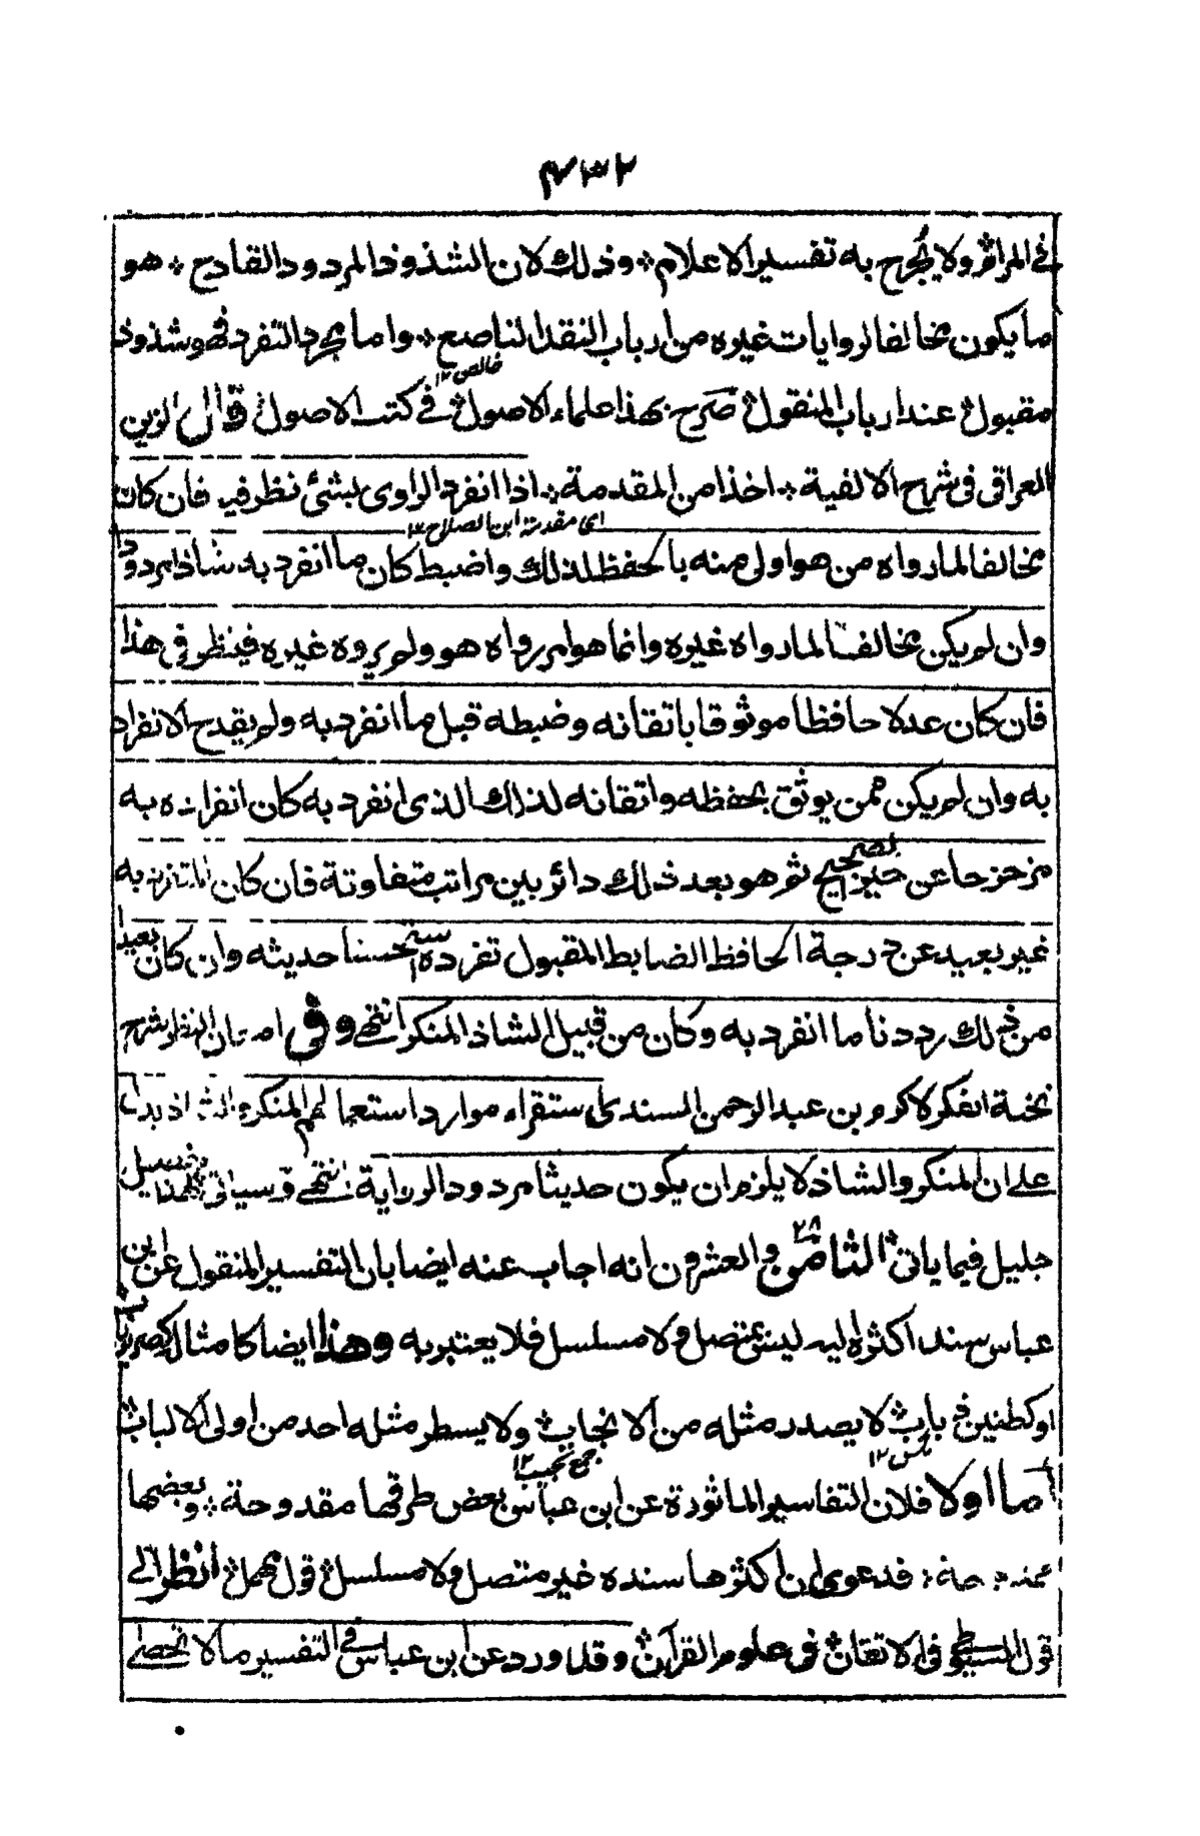 ٤٣٢
في المراثر ولا يجرح به تفسير الاعلام٭ وذلك لان الشذوذ المردود القادح٭ هو
ما يكون مخالفا لروايات غيره من ارباب النقد الناصع٭ واما مجرد التفرد فهو شذوذ
خالص١٢
مقبول عند ارباب المنقول صرح بهذا علماء الاصول في كتب الاصول قال الزين
العراقى فى شرح الالفية٭ اخذا من المقدمة٭ اذا انفرد الراوى بشئ نظر فيه فان كان
اى مقدمة ابن الصلاح ١٢
مخالفا لما رواه من هو اولى منه بالحفظ لذلك واضبط كان ما انفرد به شاذا مردودا
وان لم يكن مخالفا لما رواه غيره وانما هو امر رواه هو ولم يروه غيره فينظر فى هذا
فان كان عدلا حافظا موثوقا باتقانه وضبطه قبل ما انفرد به ولم يقدح الانفراد
به وان لم يكن ممن يوثق بحفظه واتقانه لذلك الذى انفرد به كان انفراده به
مزحزحا عن حيز الصحيح ثم هو بعد ذلك دائر بين مراتب متفاوتة فان كان المتفرد به
غير بعيد عن درجة الحافظ الضابط المقبول تفرده استحسنا حديثه وان كان بعيدا
من ذلك رددنا ما انفرد به وكان من قبيل الشاذ المنكر انتهى وفى امعان النظر شرح
نخبة الفكر لاكرم بن عبد الرحمن السندى استقراء موارد استعمالهم المنكر والشاذ يدل
على ان المنكر والشاذ لا يلزم ان يكون حديثا مردود الرواية انتهى وسياتى لهذا تفصيل
جليل فيما ياتى الثامن والعشرون انه اجاب عنه ايضا بان التفسير المنقول عن ابن
٢٨
عباس سند اكثره اليه ليس بمتصل ولا مسلسل فلا يعتبر به وهذا ايضا كامثاله كصرير باب
او كطنين ذباب لا يصدر مثله من الانجاب ولا يسطر مثله احد من اولى الالباب
مگس ١٢
جمع نجيب ١٢
اما اولا فلان التفاسير الماثورة عن ابن عباس بعض طرقها مقدوحة٭ وبعضها
ممدوحة٭ فدعوى ان اكثرها سنده غير متصل ولا مسلسل قول مهمل انظر الى
قول السيوطى فى الاتقان فى علوم القرآن وقد ورد عن ابن عباس فى التفسير مالا تحصى